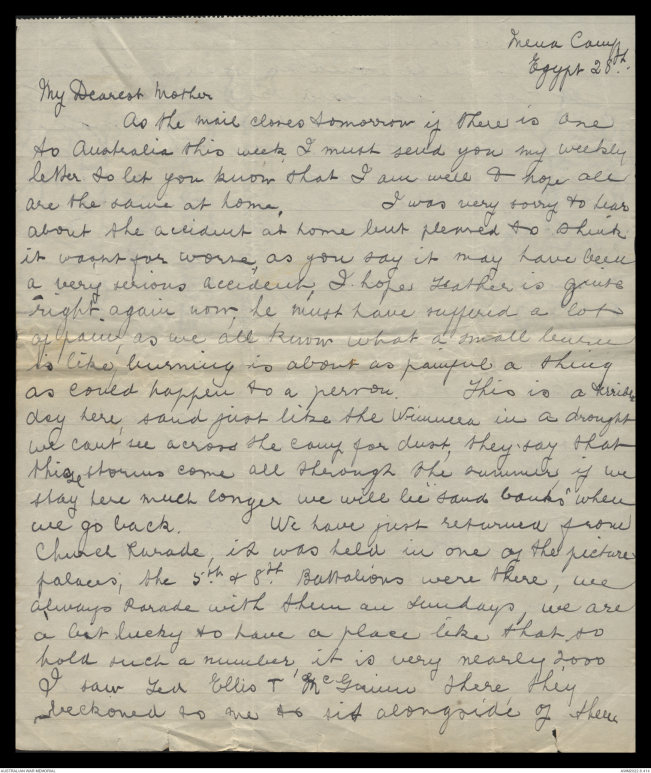 Mena Camp
Egypt 28th.
My Dearest Mother
As the mail closes tomorrow if there is one
to Australia this week, I must send you my weekly
letter to let you know that I am well & hope all
are the same at home. I was very sorry to hear
about the accident at home but pleased to think
it wasnt far worse, as you say it may have been
a very serious accident, I hope Father is quite
right again now, he must have suffered a lot
of pain, as we all know what a small burn
is like, burning is about as painful a thing
as could happen to a person. This is a terrible
day here, sand just like the Wimmera in a drought
we cant see across the camp for dust, they say that
these storms come all through the summer if we
stay here much longer we will be "sand banks" when
we go back. We have just returned from
Church Parade, it was held in one of the picture
palaces, the 5th & 8th Battalions were there, we
always Parade with them on Sundays, we are
a bit lucky to have a place like that to
hold such a number, it is very nearly 2000
I saw Ted Ellis & McGinn there they
beckoned to me to sit alongside of them
AUSTRALIAN WAR MEMORIAL
AWM2022.6.414